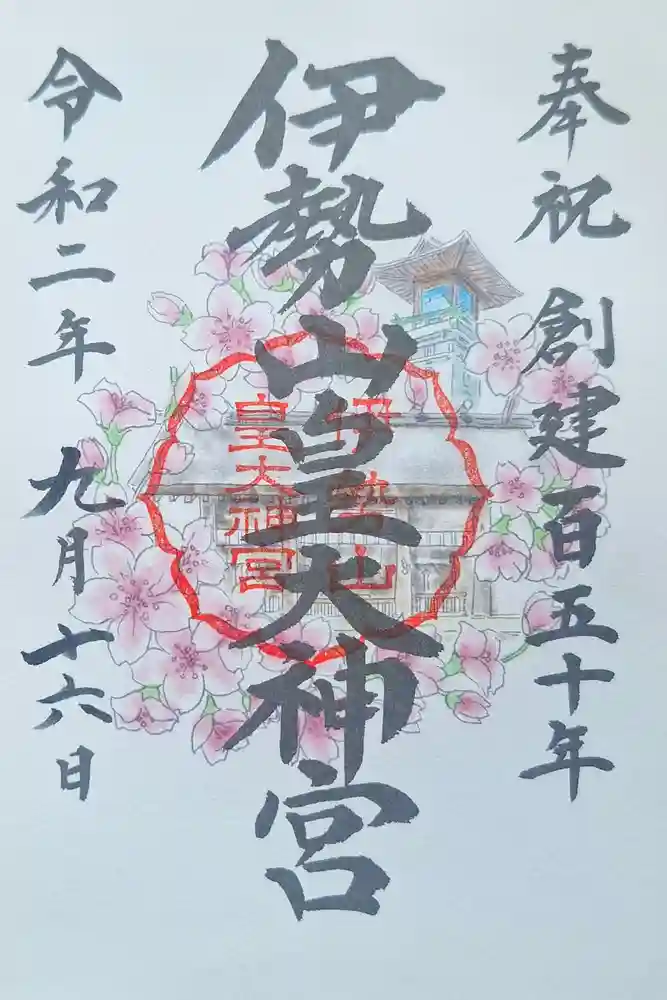 奉祝 創建百五十年
伊勢山皇大神宮
伊勢山
皇大神宮
令和二年 九月 十六日